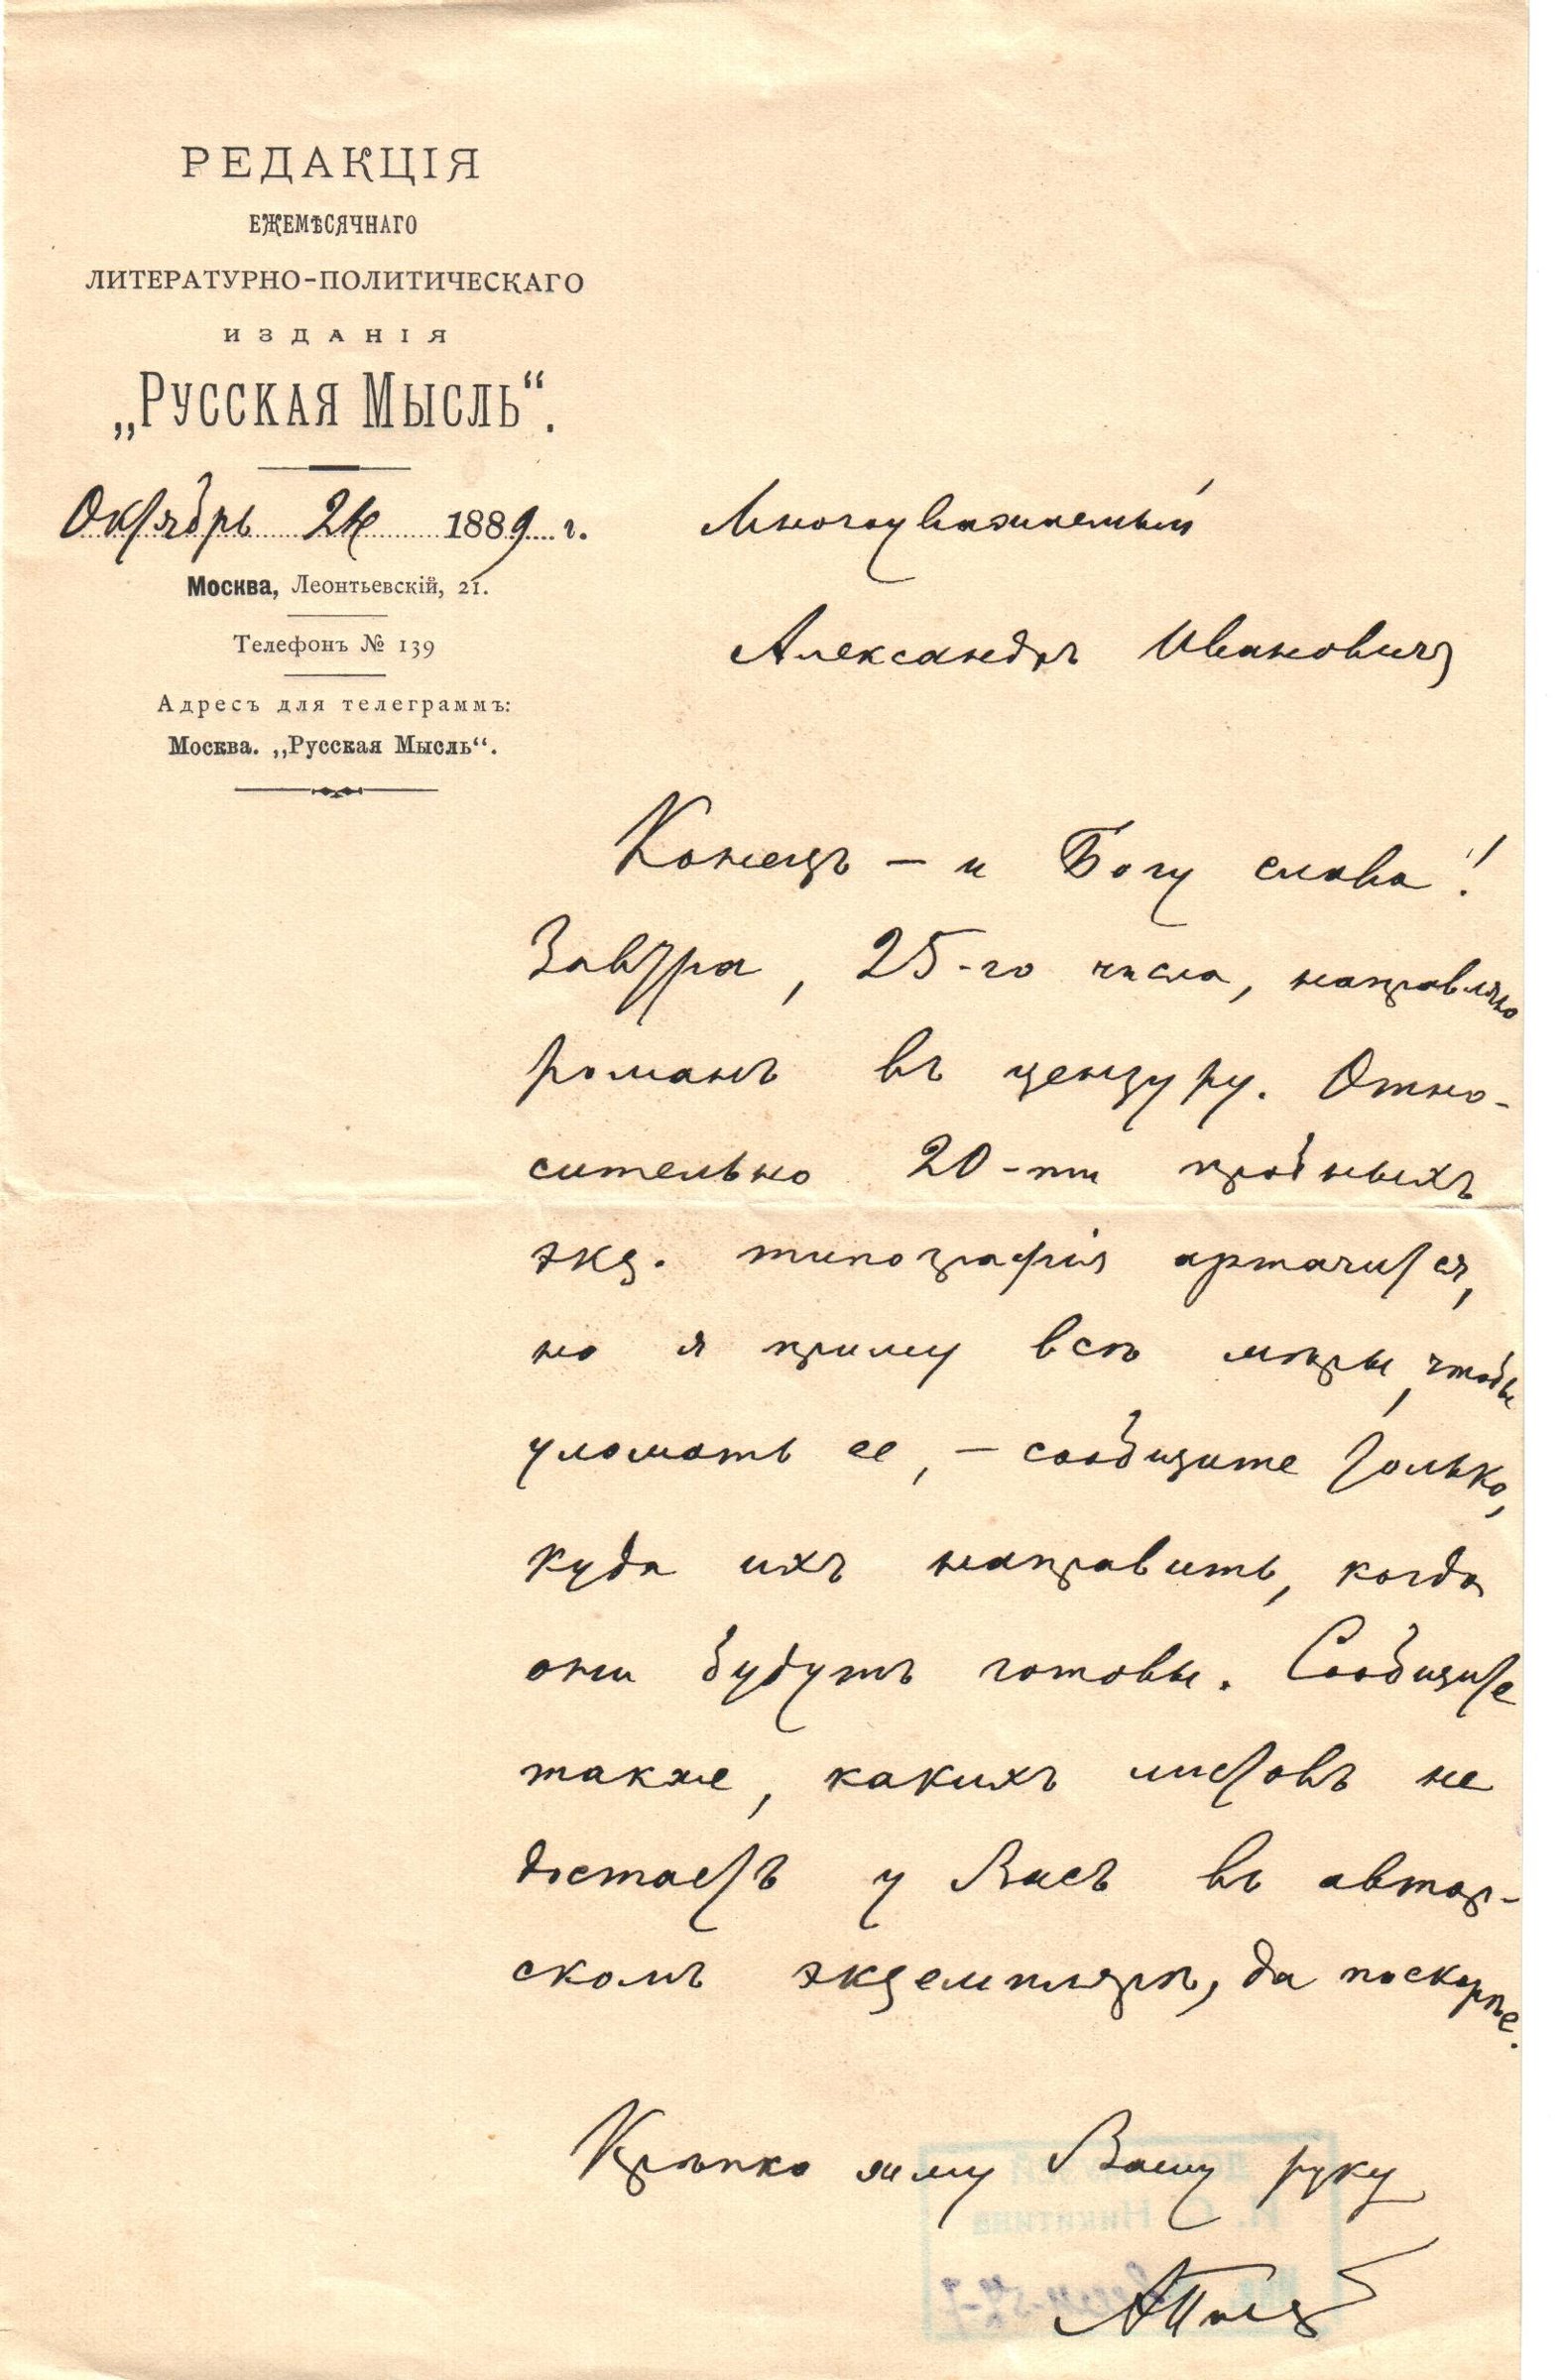 РЕДАКЦІЯ
ЕЖЕМѢСЯЧНАГО
ЛИТЕРАТУРНО-ПОЛИТИЧЕСКАГО
ИЗДАНІЯ
„РУССКАЯ МЫСЛЬ“.
Октябрь 24 1889 г.
Москва, Леонтьевскій, 21.
Телефонъ № 139
Адресъ для телеграммъ:
Москва. „Русская Мысль“.
Многоуважаемый
Александръ Ивановичъ
Конецъ – и Богу слава!
Завтра, 25-го числа, направляю
романъ въ цензуру. Отно-
сительно 20-ти пробныхъ
экз. типографія артачится,
но я приму всѣ мѣры, чтобы
уломать ее, – сообщите только,
куда ихъ направить, когда
они будутъ готовы. Сообщите
также, какихъ листовъ не
достаетъ у Васъ въ автор-
скомъ экземплярѣ, да поскорѣе.
Крѣпко жму Вашу руку
И. С. Никитина